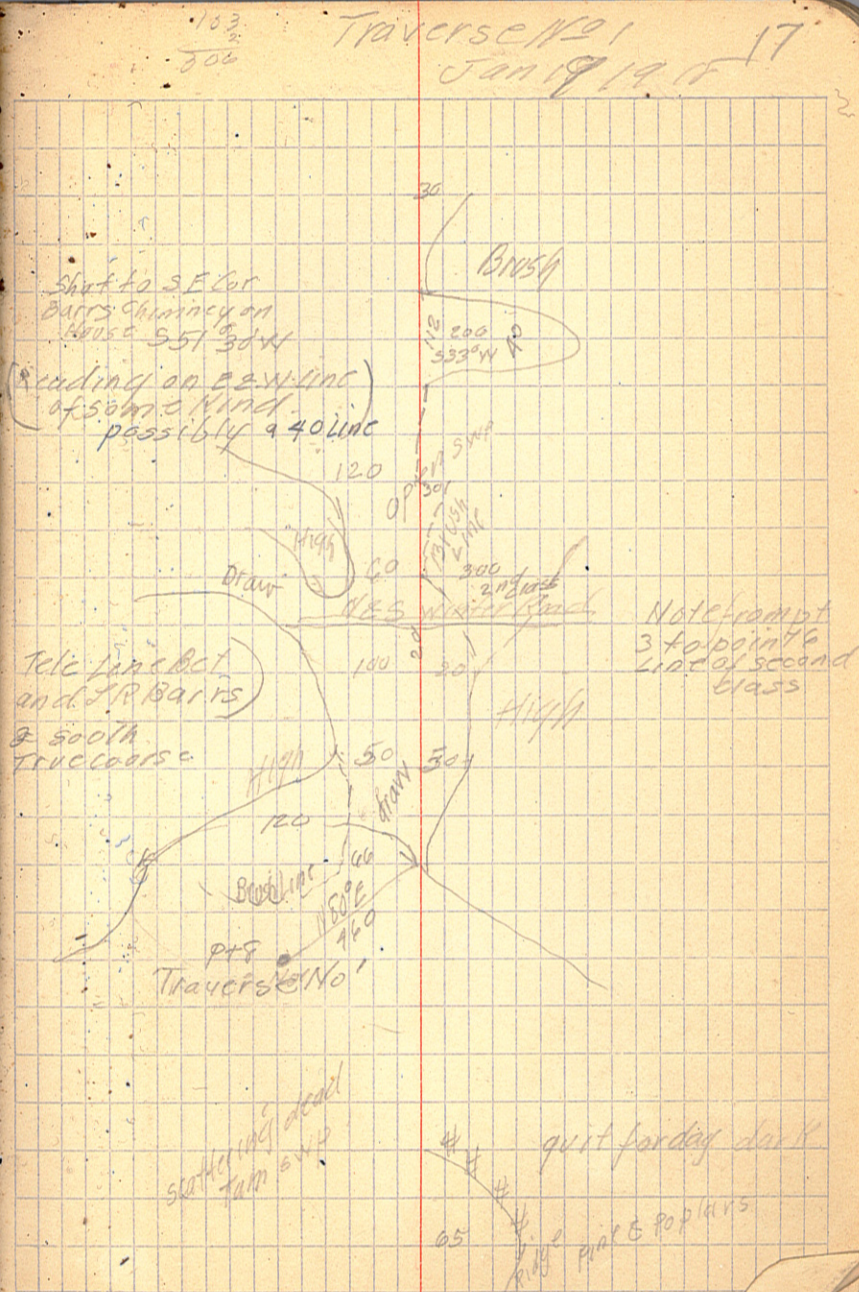 103
2
Traverse No 1
17
Jan 19 19
30
Brush
Shot to S.E Cor
Barrs Chimney on
House S51° 30' W
(Reading on E & W Line
of some Kind
possibly a 40 Line
200
S33°W
120
Open Swp
30
Brush
Line
High
60
300
2nd class
Draw
N&S Winter Road
Note from pt
3 to point 6
Line of second
class
Tele Line Bet
and J R Barrs)
south
True course
100
20
20
High
High
50
50
draw
120
66
Brush Line
N80°E
460
pt 8
Traverse No 1
scattering dead
Tam swp
quit for day dark
65
Ridge
Pine & Poplars